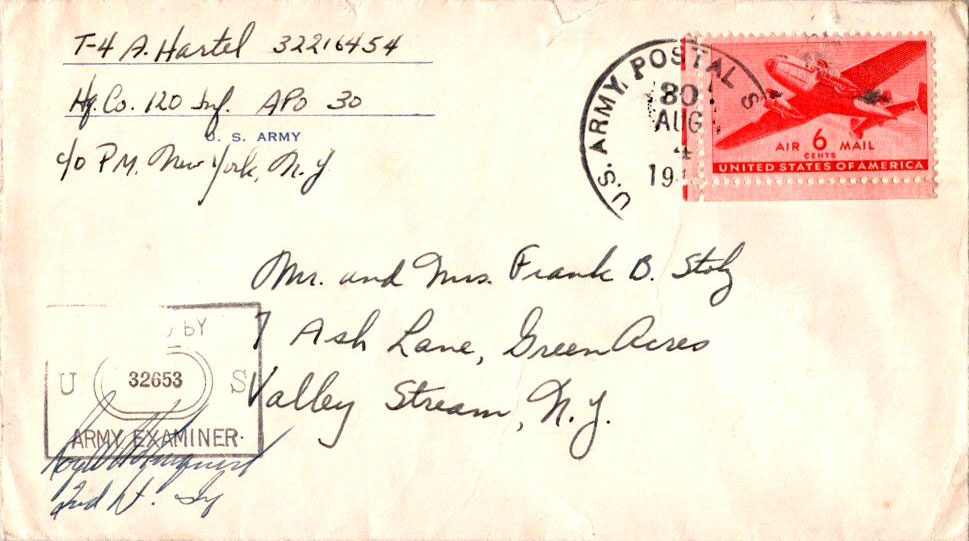 T-4 A. Hartel 32216454
Hq. Co. 120 Inf. APO 30
U. S. ARMY
c/o P.M. New York, N.Y
U.S. ARMY POSTAL S
30
AUG
4
19
AIR 6 MAIL
CENTS
UNITED STATES OF AMERICA
Mr. and Mrs. Frank B. Stolz
7 Ash Lane, Green Acres
Valley Stream, N.Y.
BY
U 32653 S
ARMY EXAMINER
2nd Lt. Inf